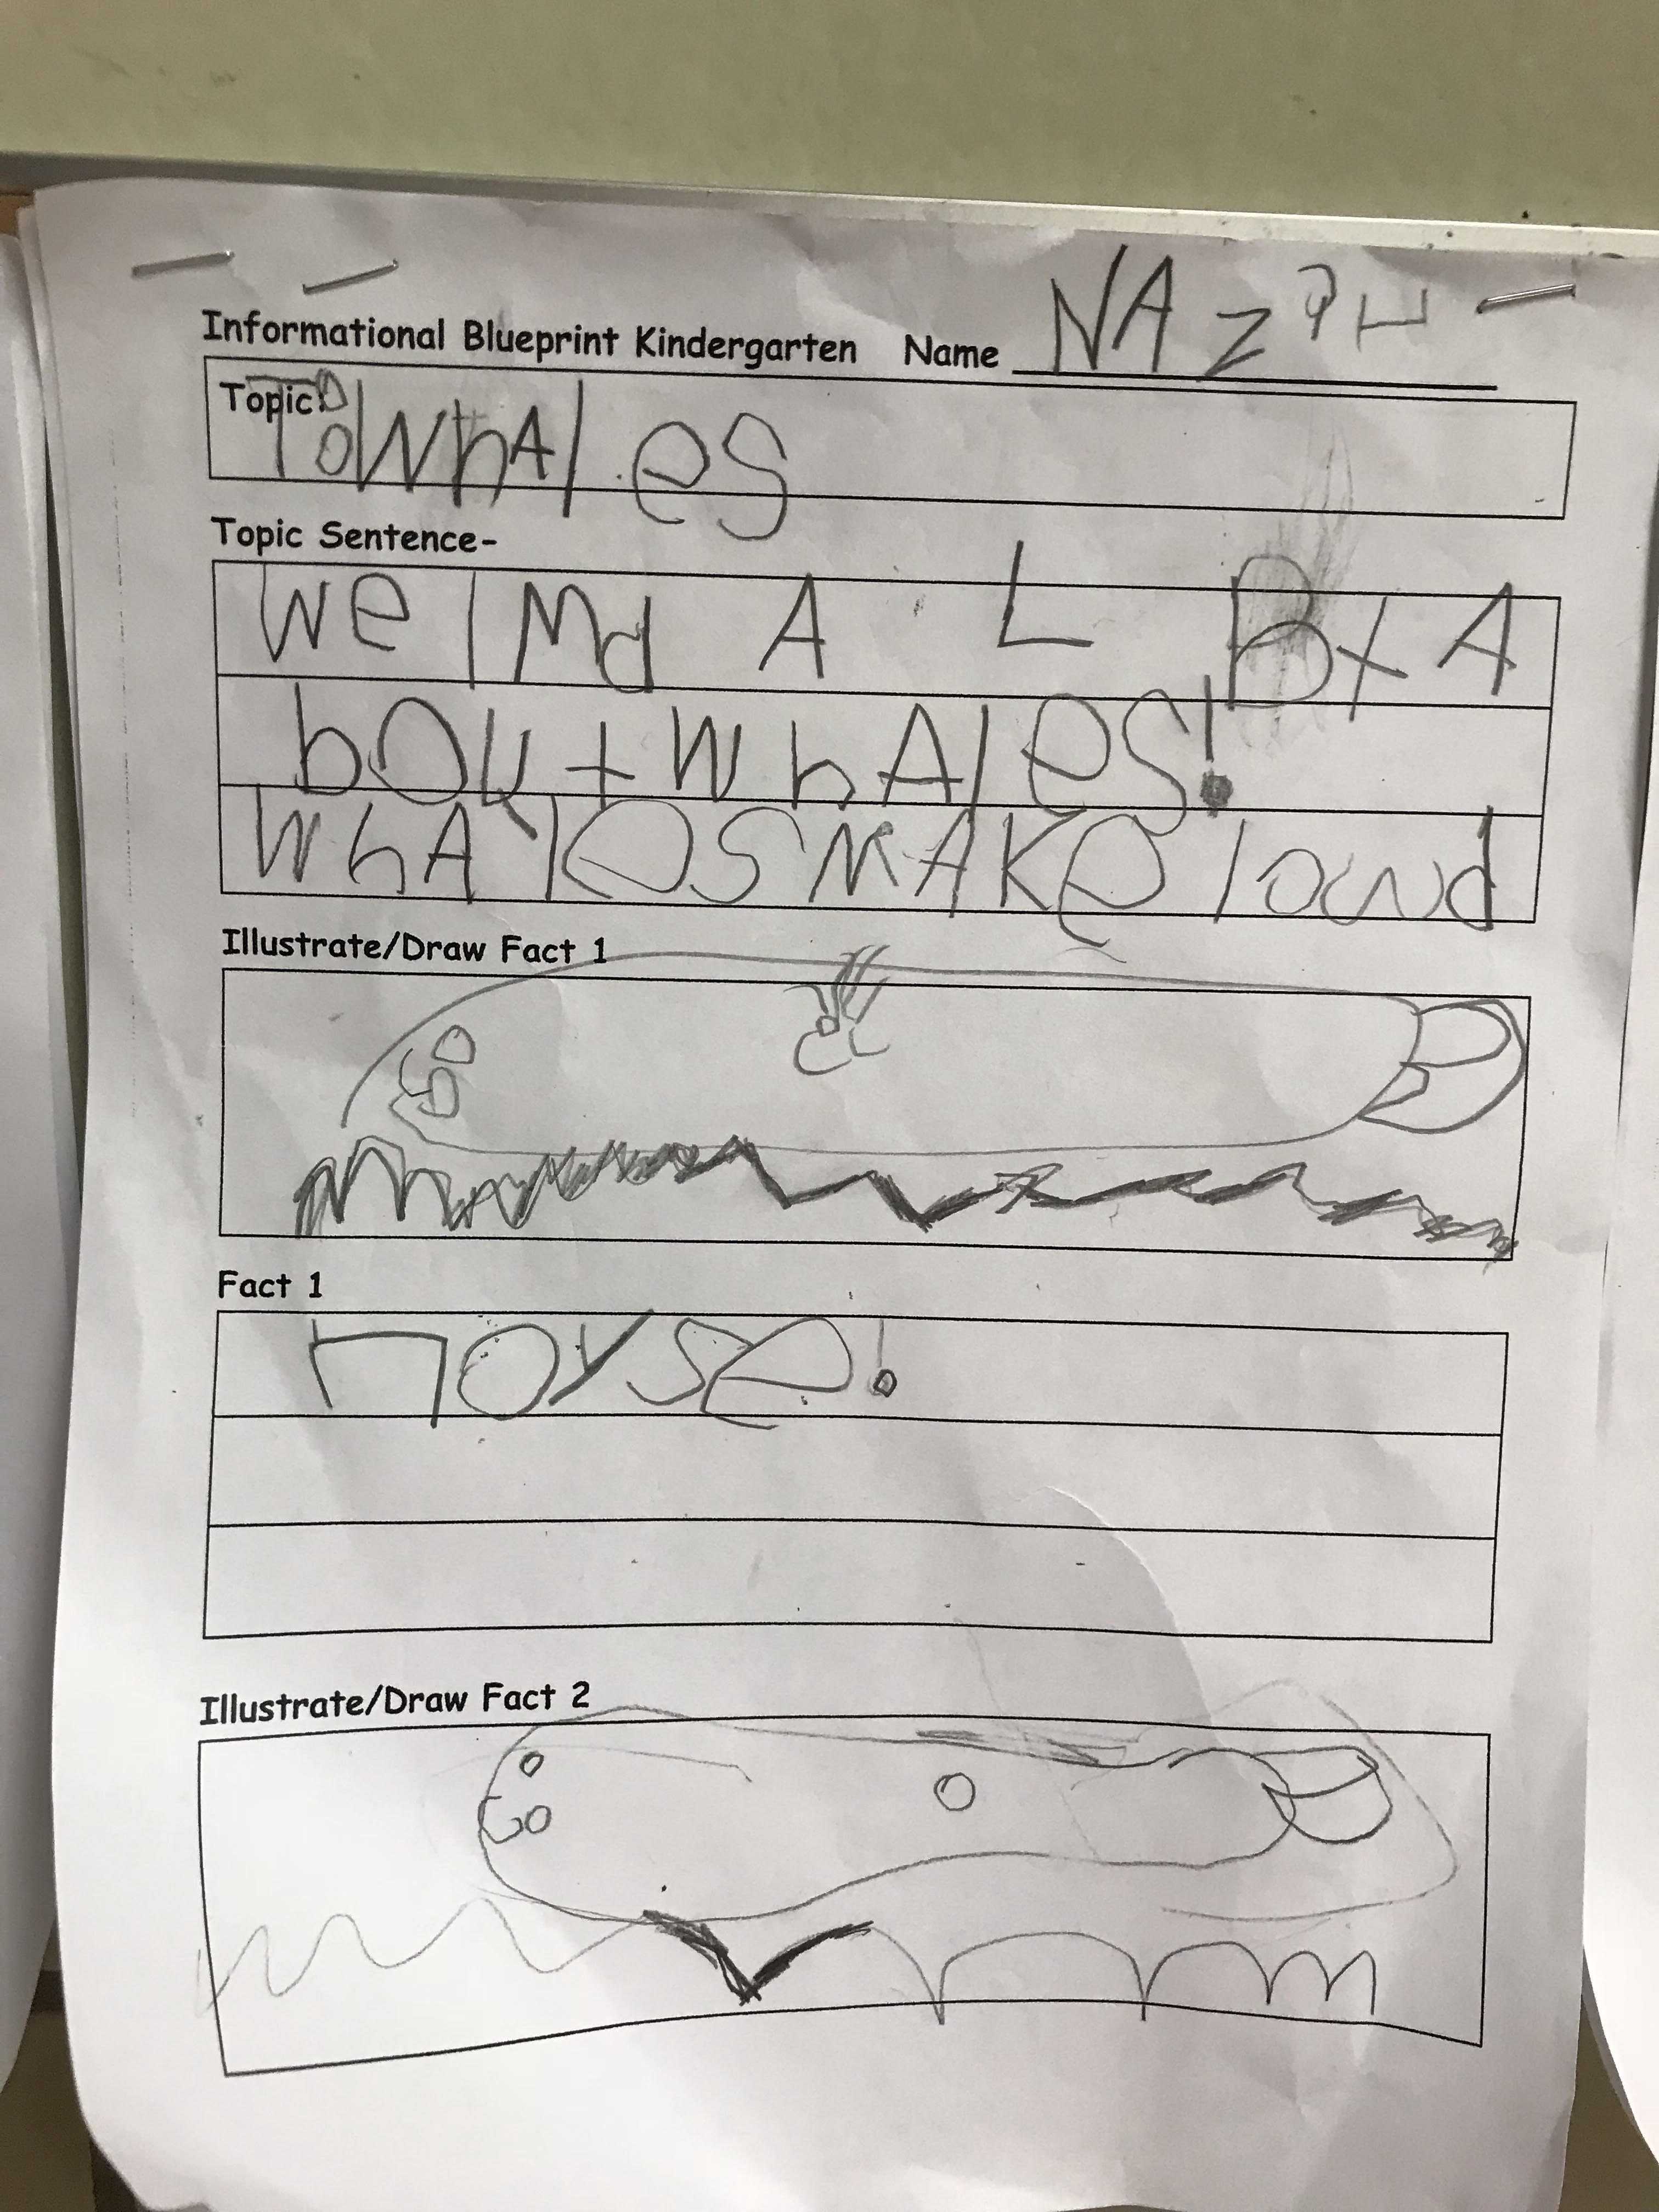 Informational Blueprint Kindergarten Name NAZ
Topic:
To WhAles
Topic Sentence-
we lMd A L Bt A
bout whAles!
WhAles MAKe lowd
Illustrate/Draw Fact 1
Fact 1
noyse!
Illustrate/Draw Fact 2